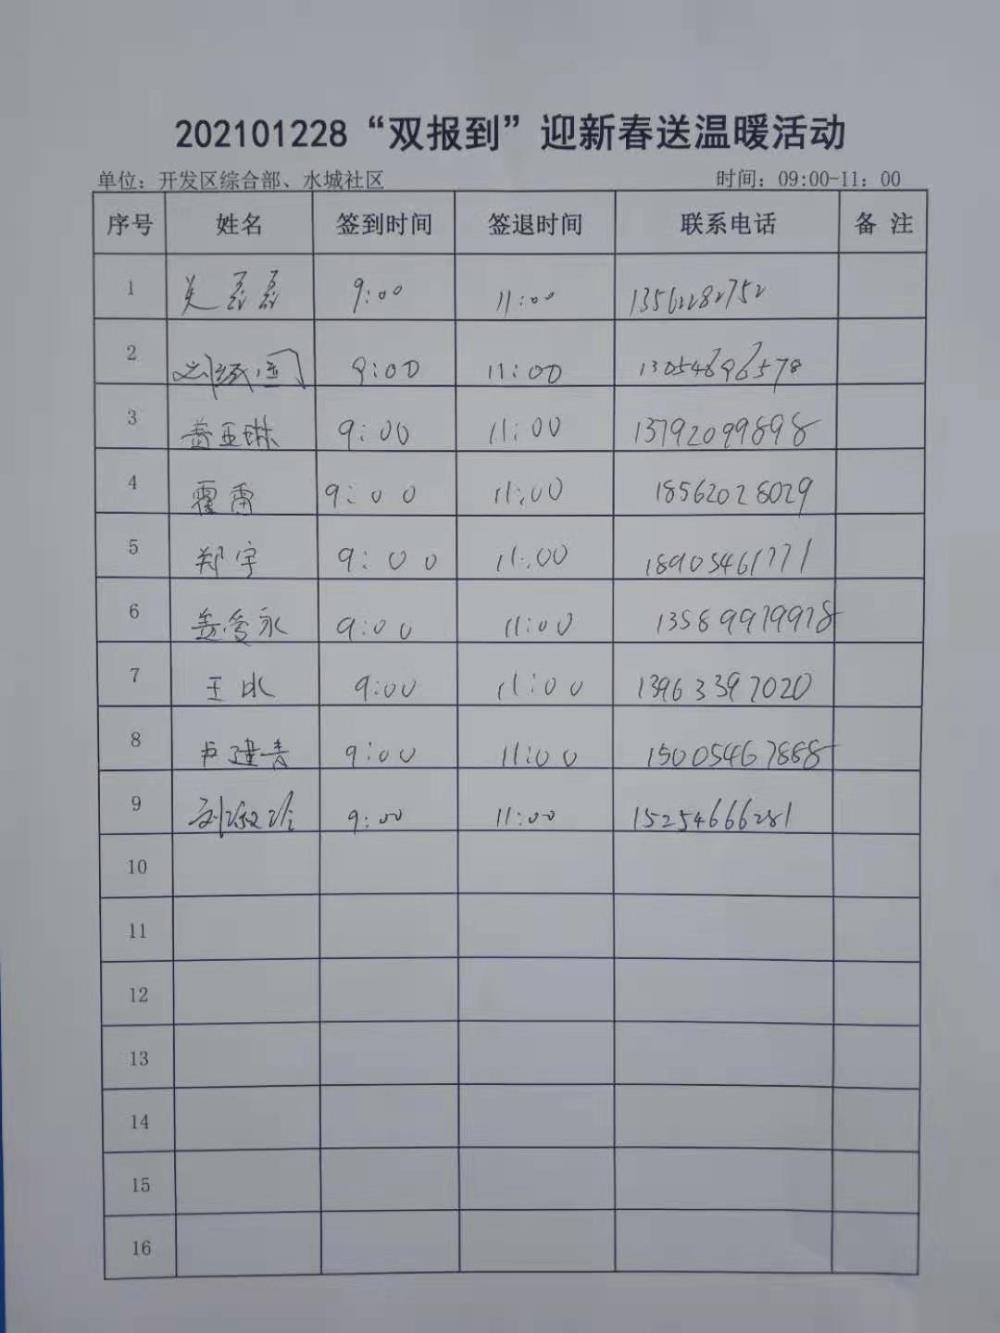 202101228“双报到”迎新春送温暖活动
单位：开发区综合部、水城社区 时间：09:00-11：00
序号 姓名 签到时间 签退时间 联系电话 备 注
1 9:00 11:00 13562282752
2 9:00 11:00 13054696578
3 黄亚琳 9:00 11:00 13792099898
4 霍雷 9:00 11:00 18562028029
5 郑宇 9:00 11:00 18905461771
6 盖俊永 9:00 11:00 13589979978
7 王冰 9:00 11:00 13963397020
8 卢建青 9:00 11:00 15005467888
9 9:00 11:00 15254666281
10
11
12
13
14
15
16